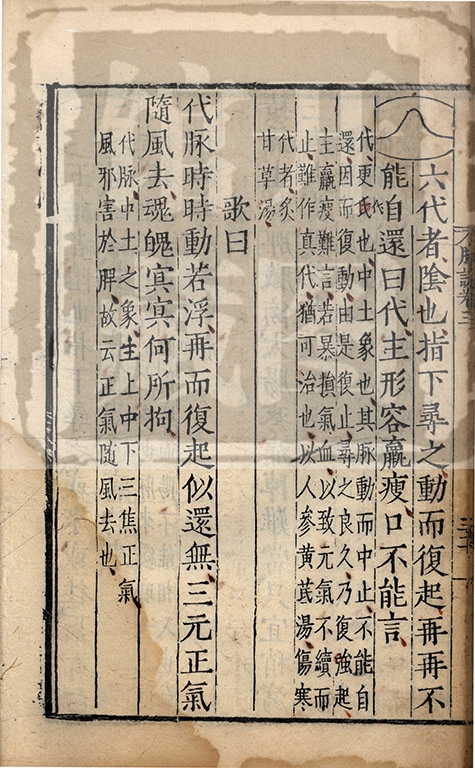 六代者陰也指下尋之動而復起再再不
能自還曰代主形容羸瘦口不能言
代更氏也中土象也其脉動而中止不能自
還因而復動由是復止尋之良久乃復強起
主羸瘦難言若暴損氣血以致元氣不續而
止難作真代猶可治也以人參黄茋湯傷寒
代者炙
甘草湯
歌曰
代脉時時動若浮再而復起似還無三元正氣
隨風去魂魄㝠㝠何所拘
代脉中土之象生上中下三焦正氣
風邪害於脾故云正氣隨風去也